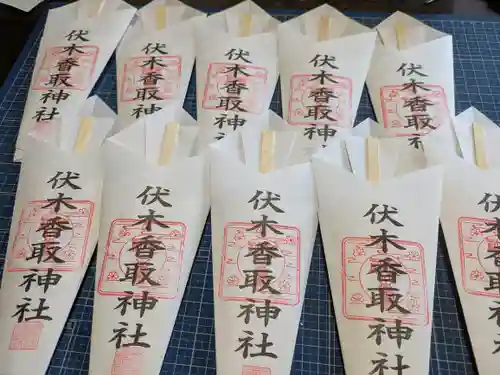 伏木香取神社
伏木香取神社
伏木香取神
伏木香取神
伏木香取神
伏木香取神社
伏木香取神社
伏木香取神社
伏木香取神社
伏木香取神社